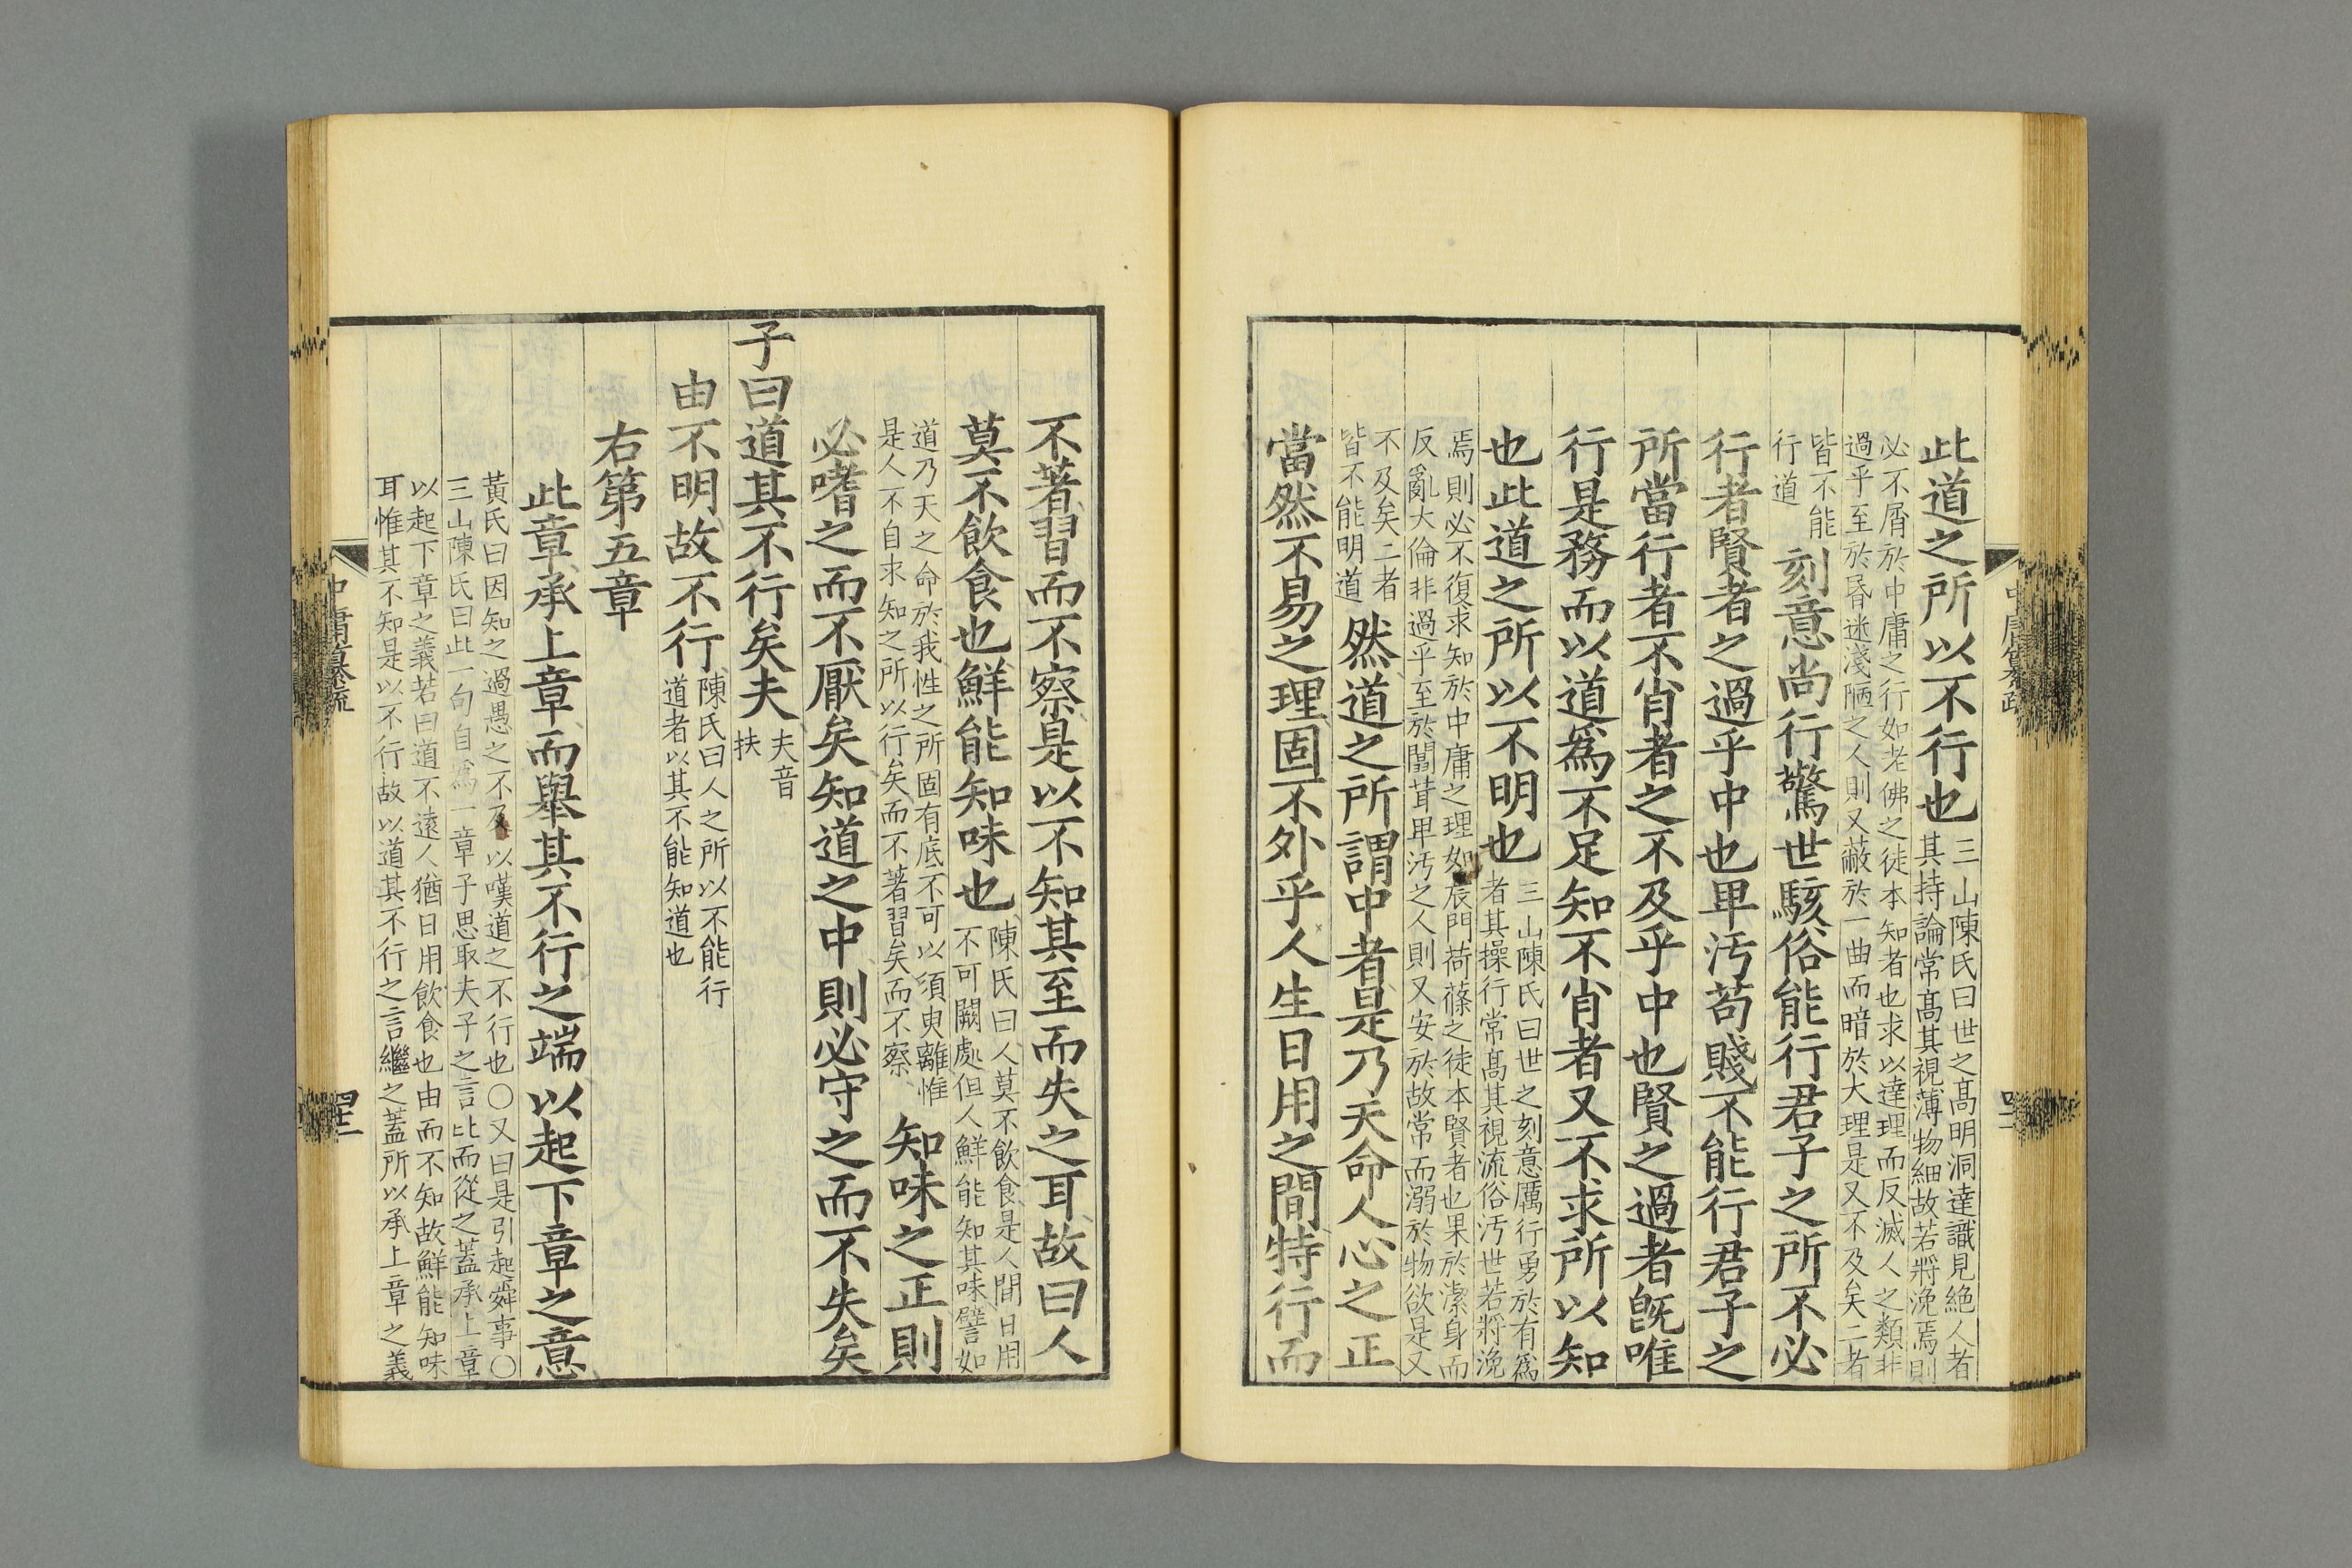 此道之所以不行也三山陳氏曰世之髙明洞達識見絶人者
其持論常髙其視薄物細故若將浼焉則
必不屑於中庸之行如老佛之徒本知者也求以達理而反滅人之類非
過乎至於昏迷淺陋之人則又蔽於一曲而暗於大理是又不及矣二者
皆不能
行道刻意尚行驚世駭俗能行君子之所不必
行者賢者之過乎中也卑汚苟賤不能行君子之
所當行者不肖者之不及乎中也賢之過者旣唯
行是務而以道爲不足知不肖者又不求所以知
也此道之所以不明也三山陳氏曰世之刻意厲行勇於有爲
者其操行常髙其視流俗汚世若將浼
焉則必不復求知於中庸之理如辰門荷蓧之徒本賢者也果於潔身而
反亂大倫非過乎至於闒茸卑汚之人則又安於故常而溺於物欲是又
不及矣二者
皆不能明道然道之所謂中者是乃天命人心之正
當然不易之理固不外乎人生日用之間特行而
中庸纂疏
不著習而不察是以不知其至而失之耳故曰人
莫不飲食也鮮能知味也陳氏曰人莫不飲食是人間日用
不可闕處但人鮮能知其味譬如
道乃天之命於我性之所固有底不可以須臾離惟
是人不自求知之所以行矣而不著習矣而不察知味之正則
必嗜之而不厭矣知道之中則必守之而不失矣
子曰道其不行矣夫夫音
扶
由不明故不行陳氏曰人之所以不能行
道者以其不能知道也
右第五章
此章承上章而舉其不行之端以起下章之意
黃氏曰因知之過愚之不及以嘆道之不行也〇又曰是引起舜事〇
三山陳氏曰此一句自爲一章子思取夫子之言比而從之蓋承上章
以起下章之義若曰道不遠人猶日用飲食也由而不知故鮮能知味
耳惟其不知是以不行故以道其不行之言繼之蓋所以承上章之義
中庸纂疏